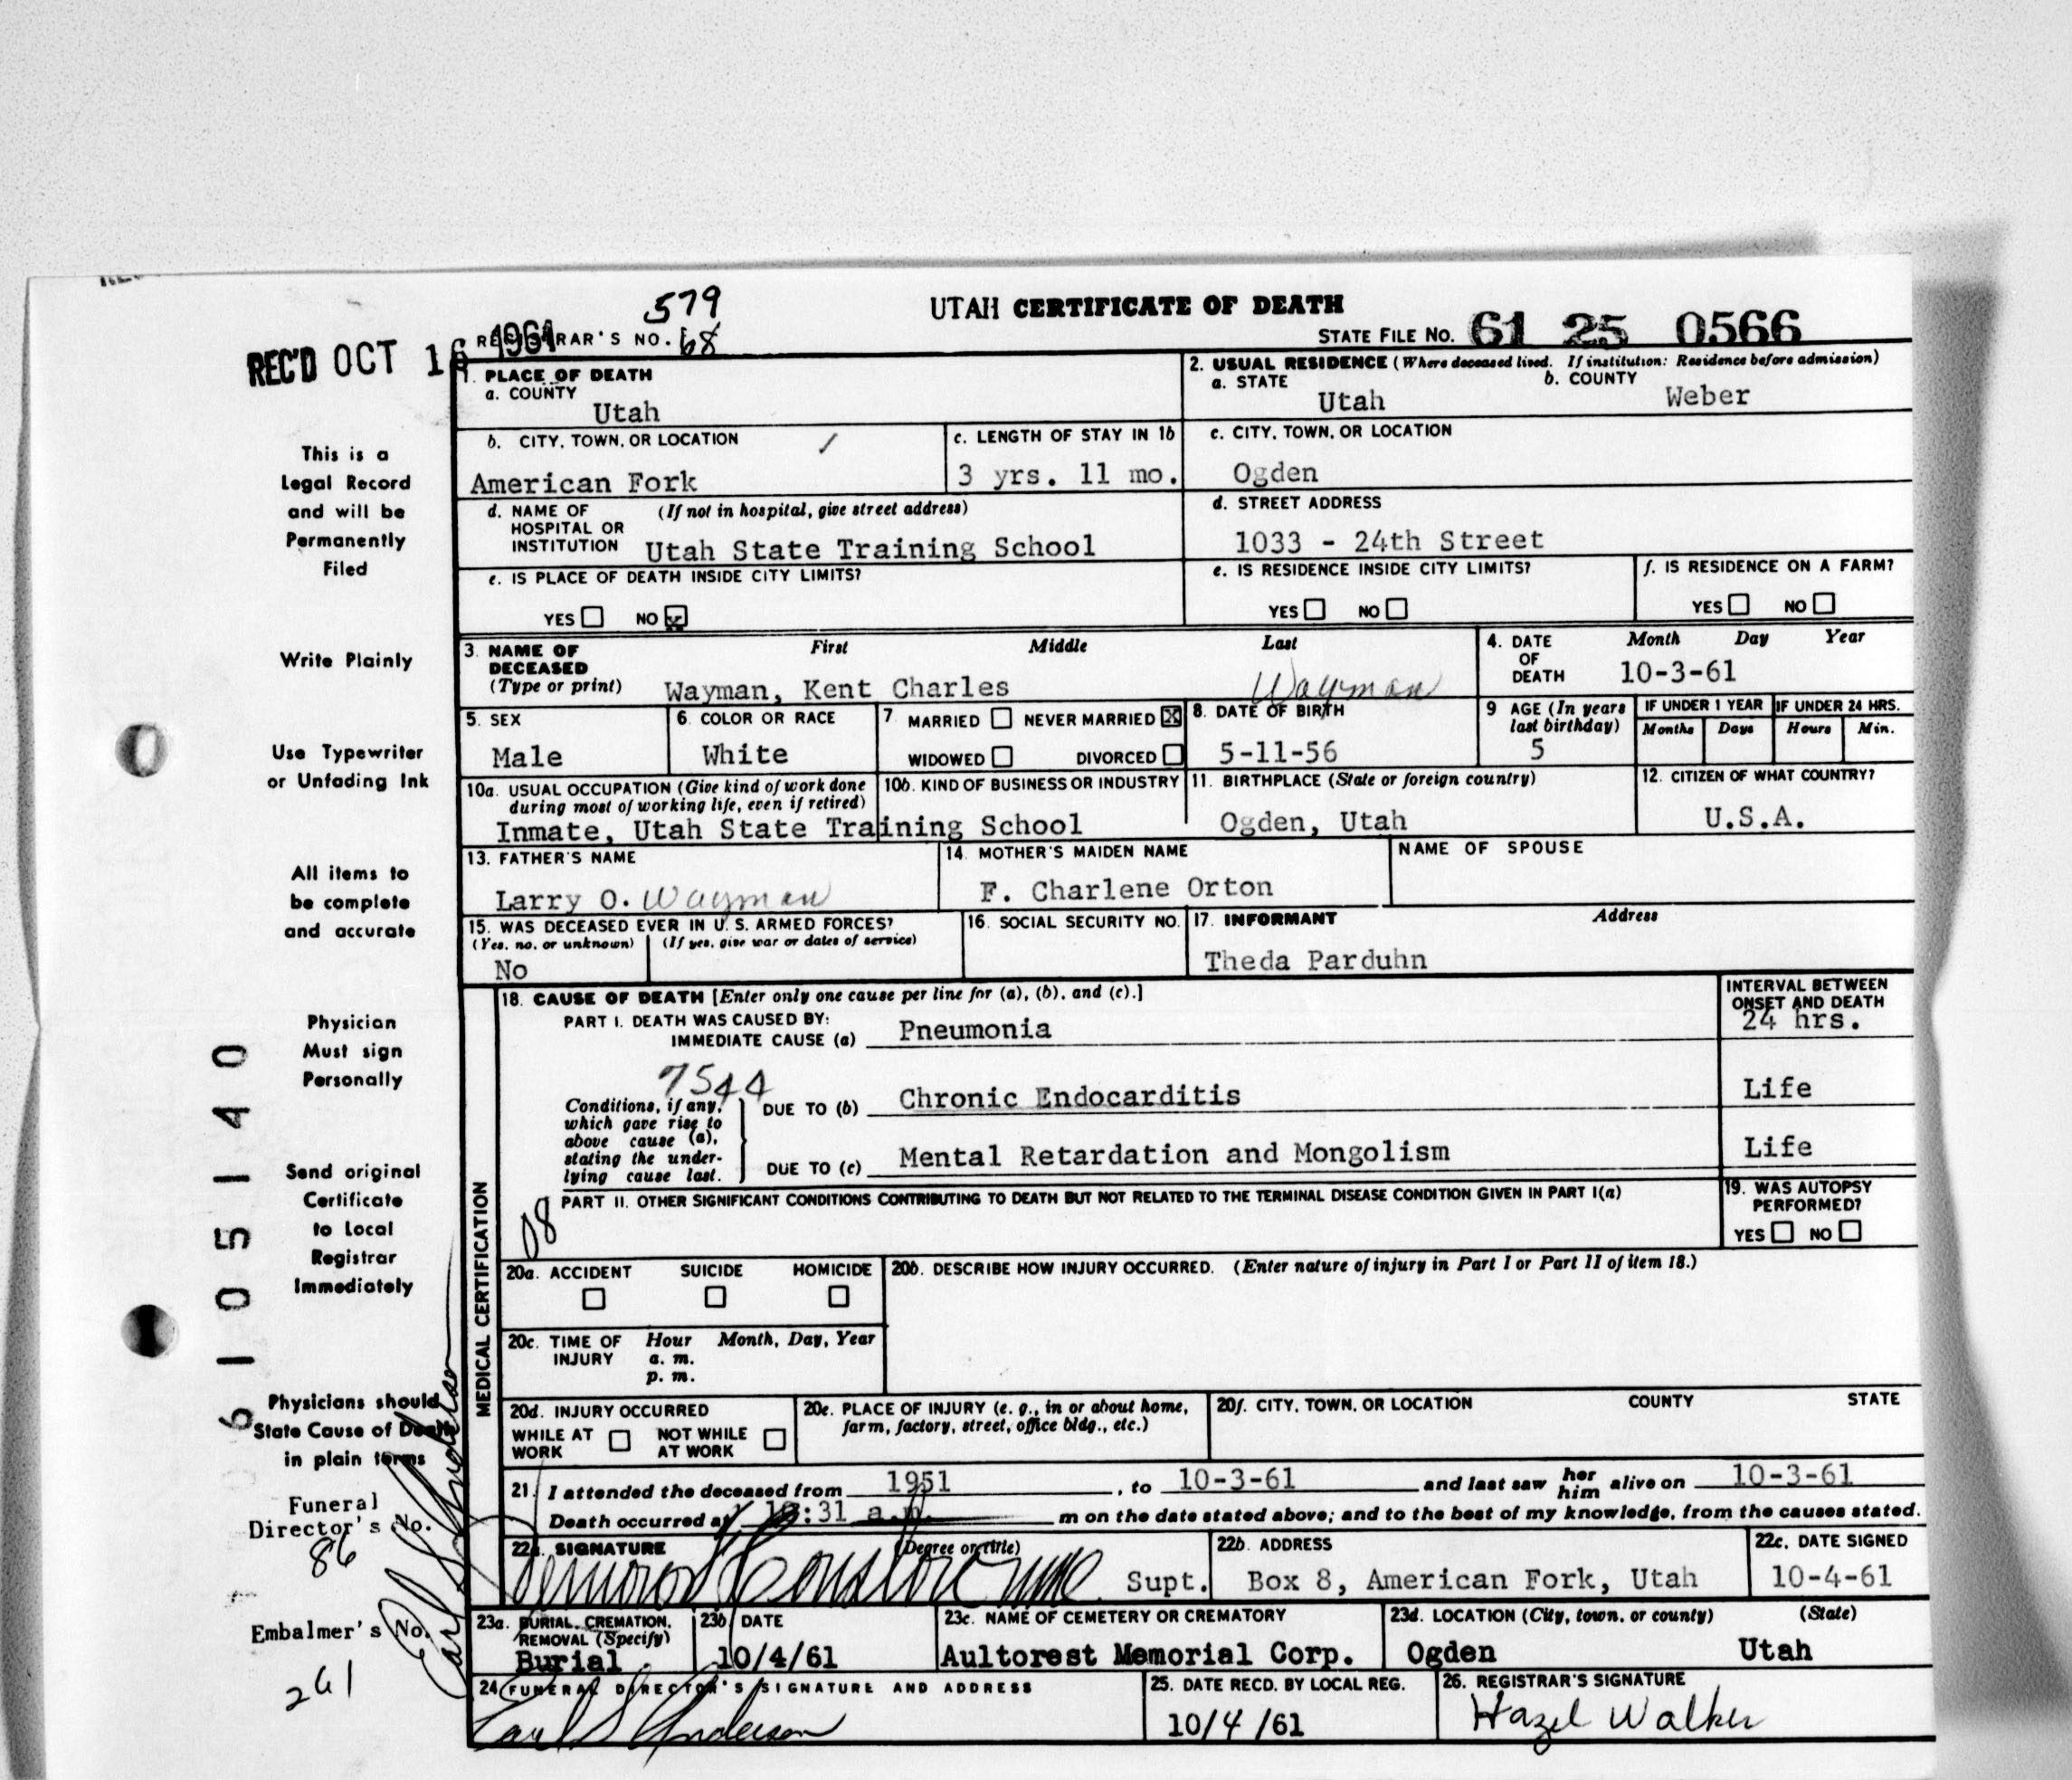 579
UTAH CERTIFICATE OF DEATH
REC'D OCT 16 1961 REGISTRAR'S NO. 68 STATE FILE NO. 61 25 0566
1. PLACE OF DEATH
a. COUNTY
Utah
2. USUAL RESIDENCE (Where deceased lived. If institution: Residence before admission)
a. STATE b. COUNTY
Utah Weber
b. CITY, TOWN, OR LOCATION
American Fork
c. LENGTH OF STAY IN 1b
3 yrs. 11 mo.
c. CITY, TOWN, OR LOCATION
Ogden
d. NAME OF (If not in hospital, give street address)
HOSPITAL OR
INSTITUTION Utah State Training School
d. STREET ADDRESS
1033 - 24th Street
e. IS PLACE OF DEATH INSIDE CITY LIMITS?
YES NO
e. IS RESIDENCE INSIDE CITY LIMITS?
YES NO
f. IS RESIDENCE ON A FARM?
YES NO
3. NAME OF First Middle Last
DECEASED
(Type or print) Wayman, Kent Charles Wayman
4. DATE Month Day Year
OF
DEATH 10-3-61
5. SEX
Male
6. COLOR OR RACE
White
7 MARRIED NEVER MARRIED
WIDOWED DIVORCED
8. DATE OF BIRTH
5-11-56
9 AGE (In years
last birthday)
5
IF UNDER 1 YEAR IF UNDER 24 HRS.
Months Days Hours Min.
10a. USUAL OCCUPATION (Give kind of work done
during most of working life, even if retired)
10b. KIND OF BUSINESS OR INDUSTRY
Inmate, Utah State Training School
11. BIRTHPLACE (State or foreign country)
Ogden, Utah
12. CITIZEN OF WHAT COUNTRY?
U.S.A.
13. FATHER'S NAME
Larry O. Wayman
14. MOTHER'S MAIDEN NAME
F. Charlene Orton
NAME OF SPOUSE
15. WAS DECEASED EVER IN U. S. ARMED FORCES?
(Yes, no, or unknown) (If yes, give war or dates of service)
No
16. SOCIAL SECURITY NO.
17. INFORMANT Address
Theda Parduhn
18. CAUSE OF DEATH [Enter only one cause per line for (a), (b), and (c).]
INTERVAL BETWEEN
ONSET AND DEATH
PART I. DEATH WAS CAUSED BY:
IMMEDIATE CAUSE (a) Pneumonia 24 hrs.
7544
Conditions, if any,
which gave rise to
above cause (a),
stating the under-
lying cause last.
DUE TO (b) Chronic Endocarditis Life
DUE TO (c) Mental Retardation and Mongolism Life
08
PART II. OTHER SIGNIFICANT CONDITIONS CONTRIBUTING TO DEATH BUT NOT RELATED TO THE TERMINAL DISEASE CONDITION GIVEN IN PART I(a)
19. WAS AUTOPSY
PERFORMED?
YES NO
20a. ACCIDENT SUICIDE HOMICIDE
20b. DESCRIBE HOW INJURY OCCURRED. (Enter nature of injury in Part I or Part II of item 18.)
20c. TIME OF Hour Month, Day, Year
INJURY a. m.
p. m.
20d. INJURY OCCURRED
WHILE AT NOT WHILE
WORK AT WORK
20e. PLACE OF INJURY (e. g., in or about home,
farm, factory, street, office bldg., etc.)
20f. CITY, TOWN, OR LOCATION COUNTY STATE
21. I attended the deceased from 1951, to 10-3-61 and last saw her him alive on 10-3-61
Death occurred at :31 a.m. m on the date stated above; and to the best of my knowledge, from the causes stated.
22a. SIGNATURE (Degree or title)
Supt.
22b. ADDRESS
Box 8, American Fork, Utah
22c. DATE SIGNED
10-4-61
23a. BURIAL, CREMATION,
REMOVAL (Specify)
Burial
23b DATE
10/4/61
23c. NAME OF CEMETERY OR CREMATORY
Aultorest Memorial Corp.
23d. LOCATION (City, town, or county) (State)
Ogden Utah
24. FUNERAL DIRECTOR'S SIGNATURE AND ADDRESS
Earl S Anderson
25. DATE RECD. BY LOCAL REG.
10/4/61
26. REGISTRAR'S SIGNATURE
Hazel Walker
MEDICAL CERTIFICATION
This is a
Legal Record
and will be
Permanently
Filed
Write Plainly
Use Typewriter
or Unfading Ink
All items to
be complete
and accurate
Physician
Must sign
Personally
Send original
Certificate
to Local
Registrar
Immediately
Physicians should
State Cause of Death
in plain terms
Funeral
Director's No.
86
Embalmer's No.
261
Earl S Anderson
6105140